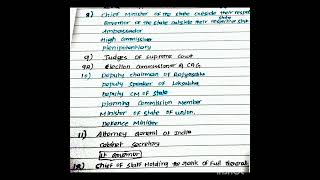 8) Chief Minister of the state outside their respective
state
Governor of the state outside their respective state
Ambassador
High Commission
Plenipotentiary
9) Judges of Supreme court
9A) Election commissioner & CAG
10) Deputy chairman of Rajyasabha
Deputy Speaker of Loksabha
Deputy CM of State
Planning Commission Member
Minister of State of Union
Defence Minister
11) Attorney General of India
Cabinet Secretary
Lt Governor
12) Chief of Staff Holding the Rank of Full General